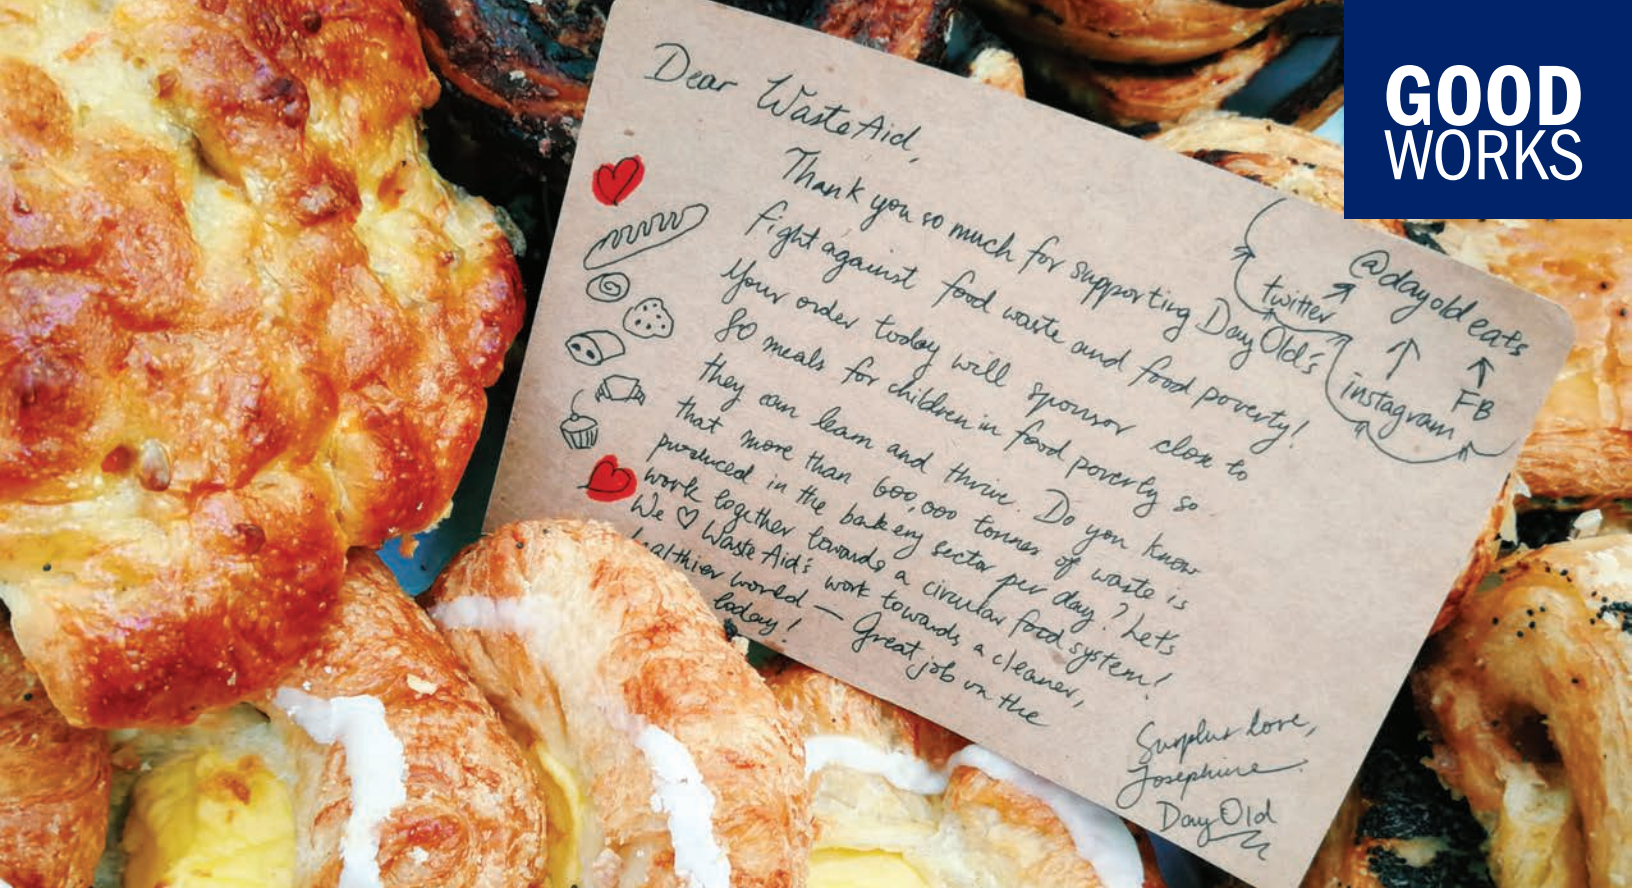 GOOD
WORKS
Dear WasteAid,
Thank you so much for supporting DayOld's
fight against food waste and food poverty!
Your order today will sponsor close to
80 meals for children in food poverty so
they can learn and thrive. Do you know
that more than 600,000 tonnes of waste is
produced in the bakery sector per day? Let's
work together towards a circular food system!
We ♡ WasteAid's work towards a cleaner,
healthier world — Great job on the
today!
@dayoldeats
twitter
instagram
FB
Surplus love,
Josephine
DayOld